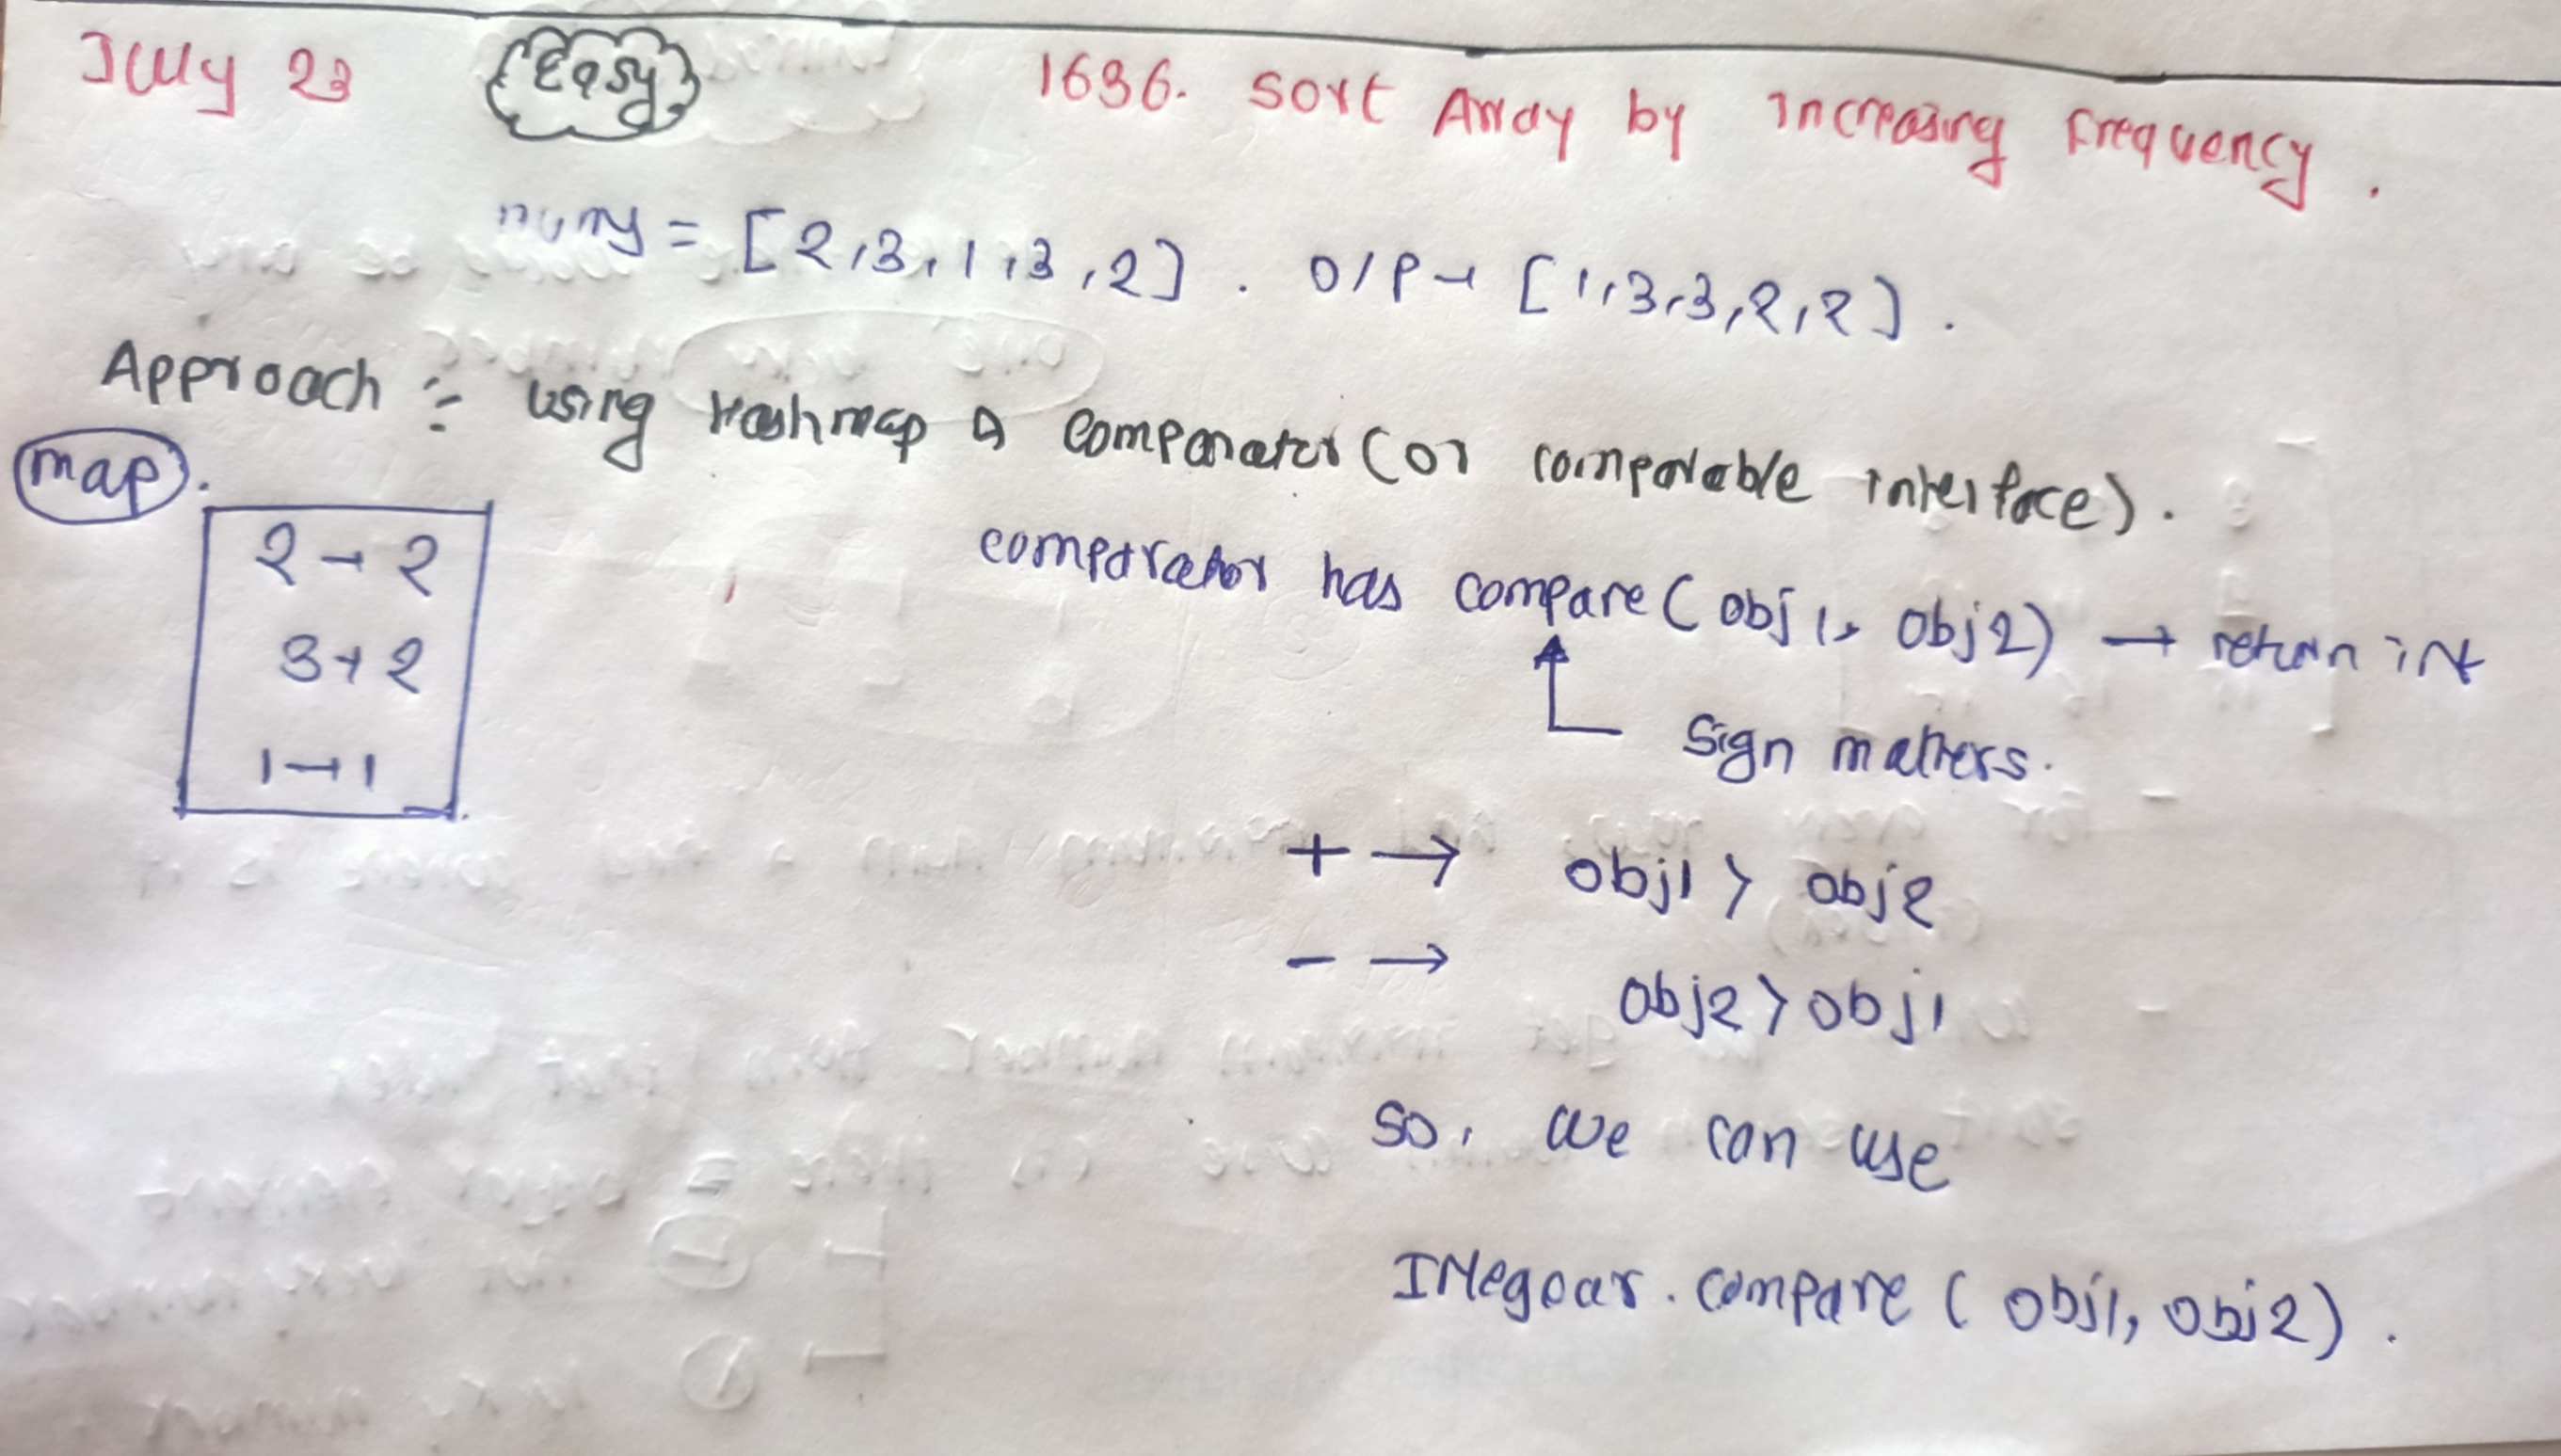 July 23 Easy 1636. Sort Array by Increasing Frequency.
nums = [2,3,1,3,2]. O/P → [1,3,3,2,2].
Approach :- using Hashmap & Comparator (or comparable interface).
map.
2 → 2
3 → 2
1 → 1
comparator has compare( obj1, obj2) → return int
Sign matters.
+ → obj1 > obj2
- → obj2 > obj1
So, we can use
INegear. compare ( obj1, obj2).